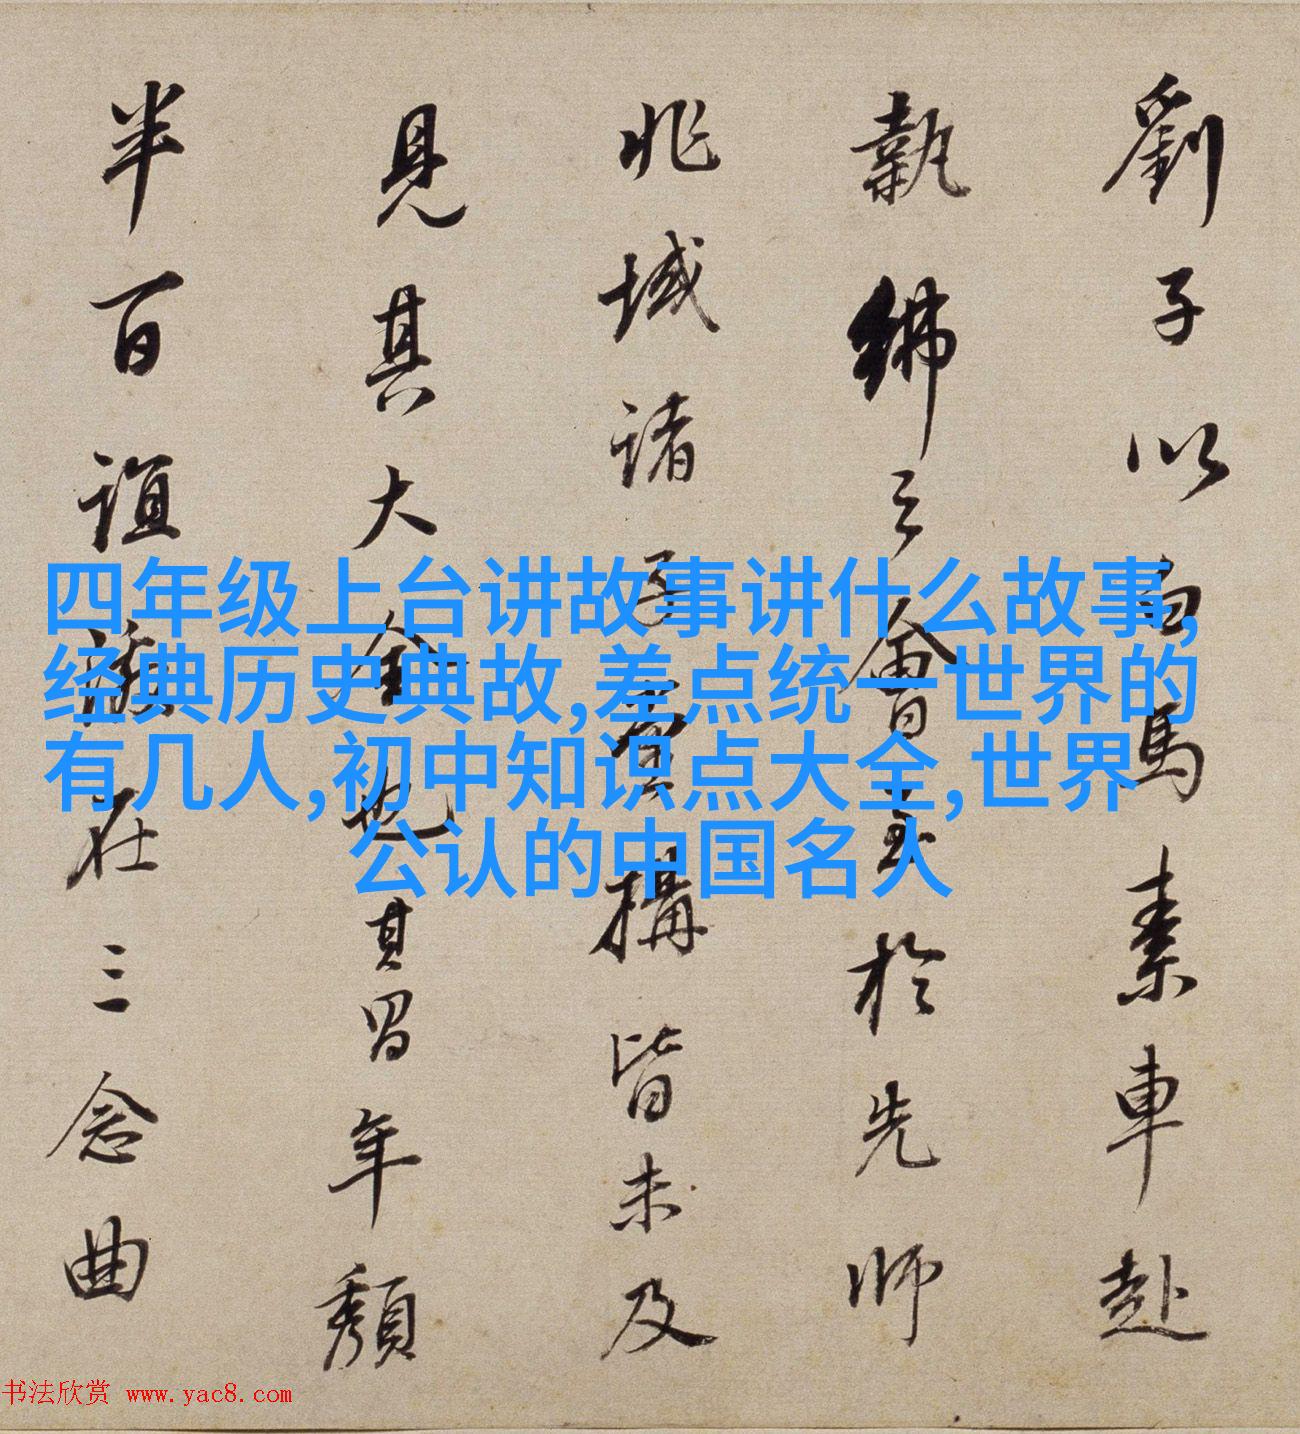 劉子以白馬素車赴
執紼之會至於先師
兆域諸子構皆未及
見其大全也其年頹
半百誼在三念曲
四年级上台讲故事讲什么故事,
经典历史典故,差点统一世界的
有几人,初中知识点大全,世界
公认的中国名人
书法欣赏 www.yac8.com